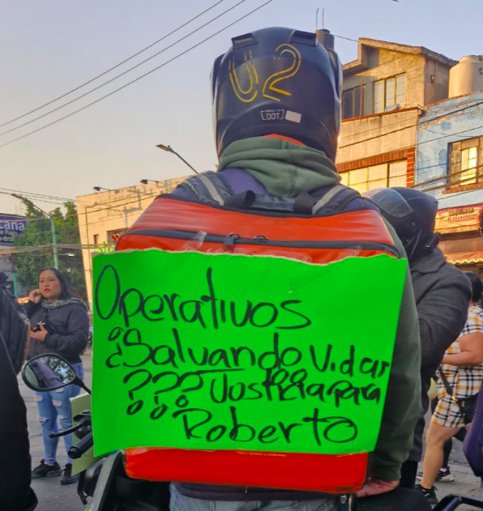 U2
DOT
cana
Operativos
¿Salvando Vidas
??? Justicia para
Roberto